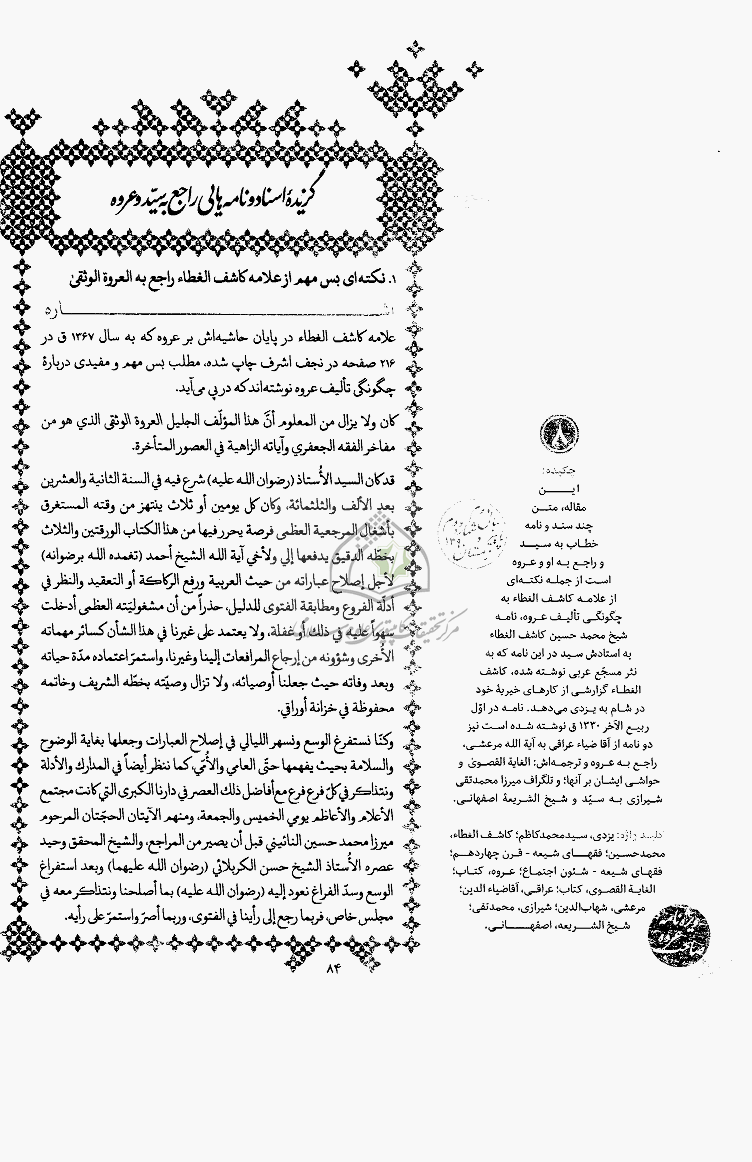 گزیدهٔ اسناد و نامه هایی راجع به سیّد و عروه
۱. نکته‌ای بس مهم از علامه کاشف الغطاء راجع به العروة الوثقیٰ
اشاره
علامه کاشف الغطاء در پایان حاشیه‌اش بر عروه که به سال ۱۳۶۷ ق در
۲۱۶ صفحه در نجف اشرف چاپ شده، مطلب بس مهم و مفیدی دربارهٔ
چگونگی تألیف عروه نوشته‌اند که در پی می‌آید.
کان ولا یزال من المعلوم أنَّ هذا المؤلّف الجلیل العروة الوثقی الذي هو من
مفاخر الفقه الجعفري وآیاته الزاهیة في العصور المتأخرة.
قد کان السید الأُستاذ (رضوان الله علیه) شرع فیه في السنة الثانیة والعشرین
بعد الألف والثلثمائة، وکان کل یومین أو ثلاث ینتهز من وقته المستغرق
بأشغال المرجعیة العظمی فرصة یحرر فیها من هذا الکتاب الورقتین والثلاث
بخطّه الدقیق یدفعها إلي ولأخي آیة الله الشیخ أحمد (تغمده الله برضوانه)
لأجل إصلاح عباراته من حیث العربیة ورفع الرکاکة أو التعقید والنظر في
أدلّة الفروع ومطابقة الفتوی للدلیل، حذراً من أن مشغولیّته العظمی أدخلت
سهواً علیه في ذلك أو غفلة، ولا یعتمد علی غیرنا في هذا الشأن کسائر مهماته
الأُخری وشؤونه من إرجاع المرافعات إلینا وغیرنا، واستمرّ اعتماده مدّة حیاته
وبعد وفاته حیث جعلنا أوصیائه، ولا تزال وصیّته بخطّه الشریف وخاتمه
محفوظة في خزانة أوراقي.
وکنّا نستفرغ الوسع ونسهر اللیالي في إصلاح العبارات وجعلها بغایة الوضوح
والسلامة بحیث یفهمها حتّی العامي والأُمّي، کما ننظر أیضاً في المدارك والأدلة
ونتذاکر في کلّ فرع فرع مع أفاضل ذلك العصر في دارنا الکبری التي کانت مجتمع
الأعلام والأعاظم یومي الخمیس والجمعة، ومنهم الآیتان الحجّتان المرحوم
میرزا محمد حسین النائیني قبل أن یصیر من المراجع، والشیخ المحقق وحید
عصره الأُستاذ الشیخ حسن الکربلائي (رضوان الله علیهما) وبعد استفراغ
الوسع وسدّ الفراغ نعود إلیه (رضوان الله علیه) بما أصلحنا ونتذاکر معه في
مجلس خاص، فربما رجع إلی رأینا في الفتوی، وربما أصرّ واستمرّ علی رأیه.
۸۴
چکیده:
این
مقاله، متن
چند سند و نامه
خطاب به سید
و راجع به او و عروه
است از جمله نکته‌ای
از علامه کاشف الغطاء به
چگونگی تألیف عروه، نامه
شیخ محمد حسین کاشف الغطاء
به استادش سید در این نامه که به
نثر مسجّع عربی نوشته شده، کاشف
الغطاء گزارشی از کارهای خیریهٔ خود
در شام به یزدی می‌دهد. نامه در اوّل
ربیع الآخر ۱۳۳۰ ق نوشته شده است نیز
دو نامه از آقا ضیاء عراقی به آیة الله مرعشی،
راجع به عروه و ترجمه‌اش: الغایة القصویٰ و
حواشی ایشان بر آنها؛ و تلگراف میرزا محمدتقی
شیرازی به سیّد و شیخ الشریعهٔ اصفهانی.
کلید واژه: یزدی، سیدمحمدکاظم؛ کاشف الغطاء،
محمدحسین؛ فقهای شیعه - قرن چهاردهم؛
فقهای شیعه - شئون اجتماع؛ عروه، کتاب؛
الغایة القصوی، کتاب؛ عراقی، آقاضیاء الدین؛
مرعشی، شهاب‌الدین؛ شیرازی، محمدتقی؛
شیخ الشریعه، اصفهانی.